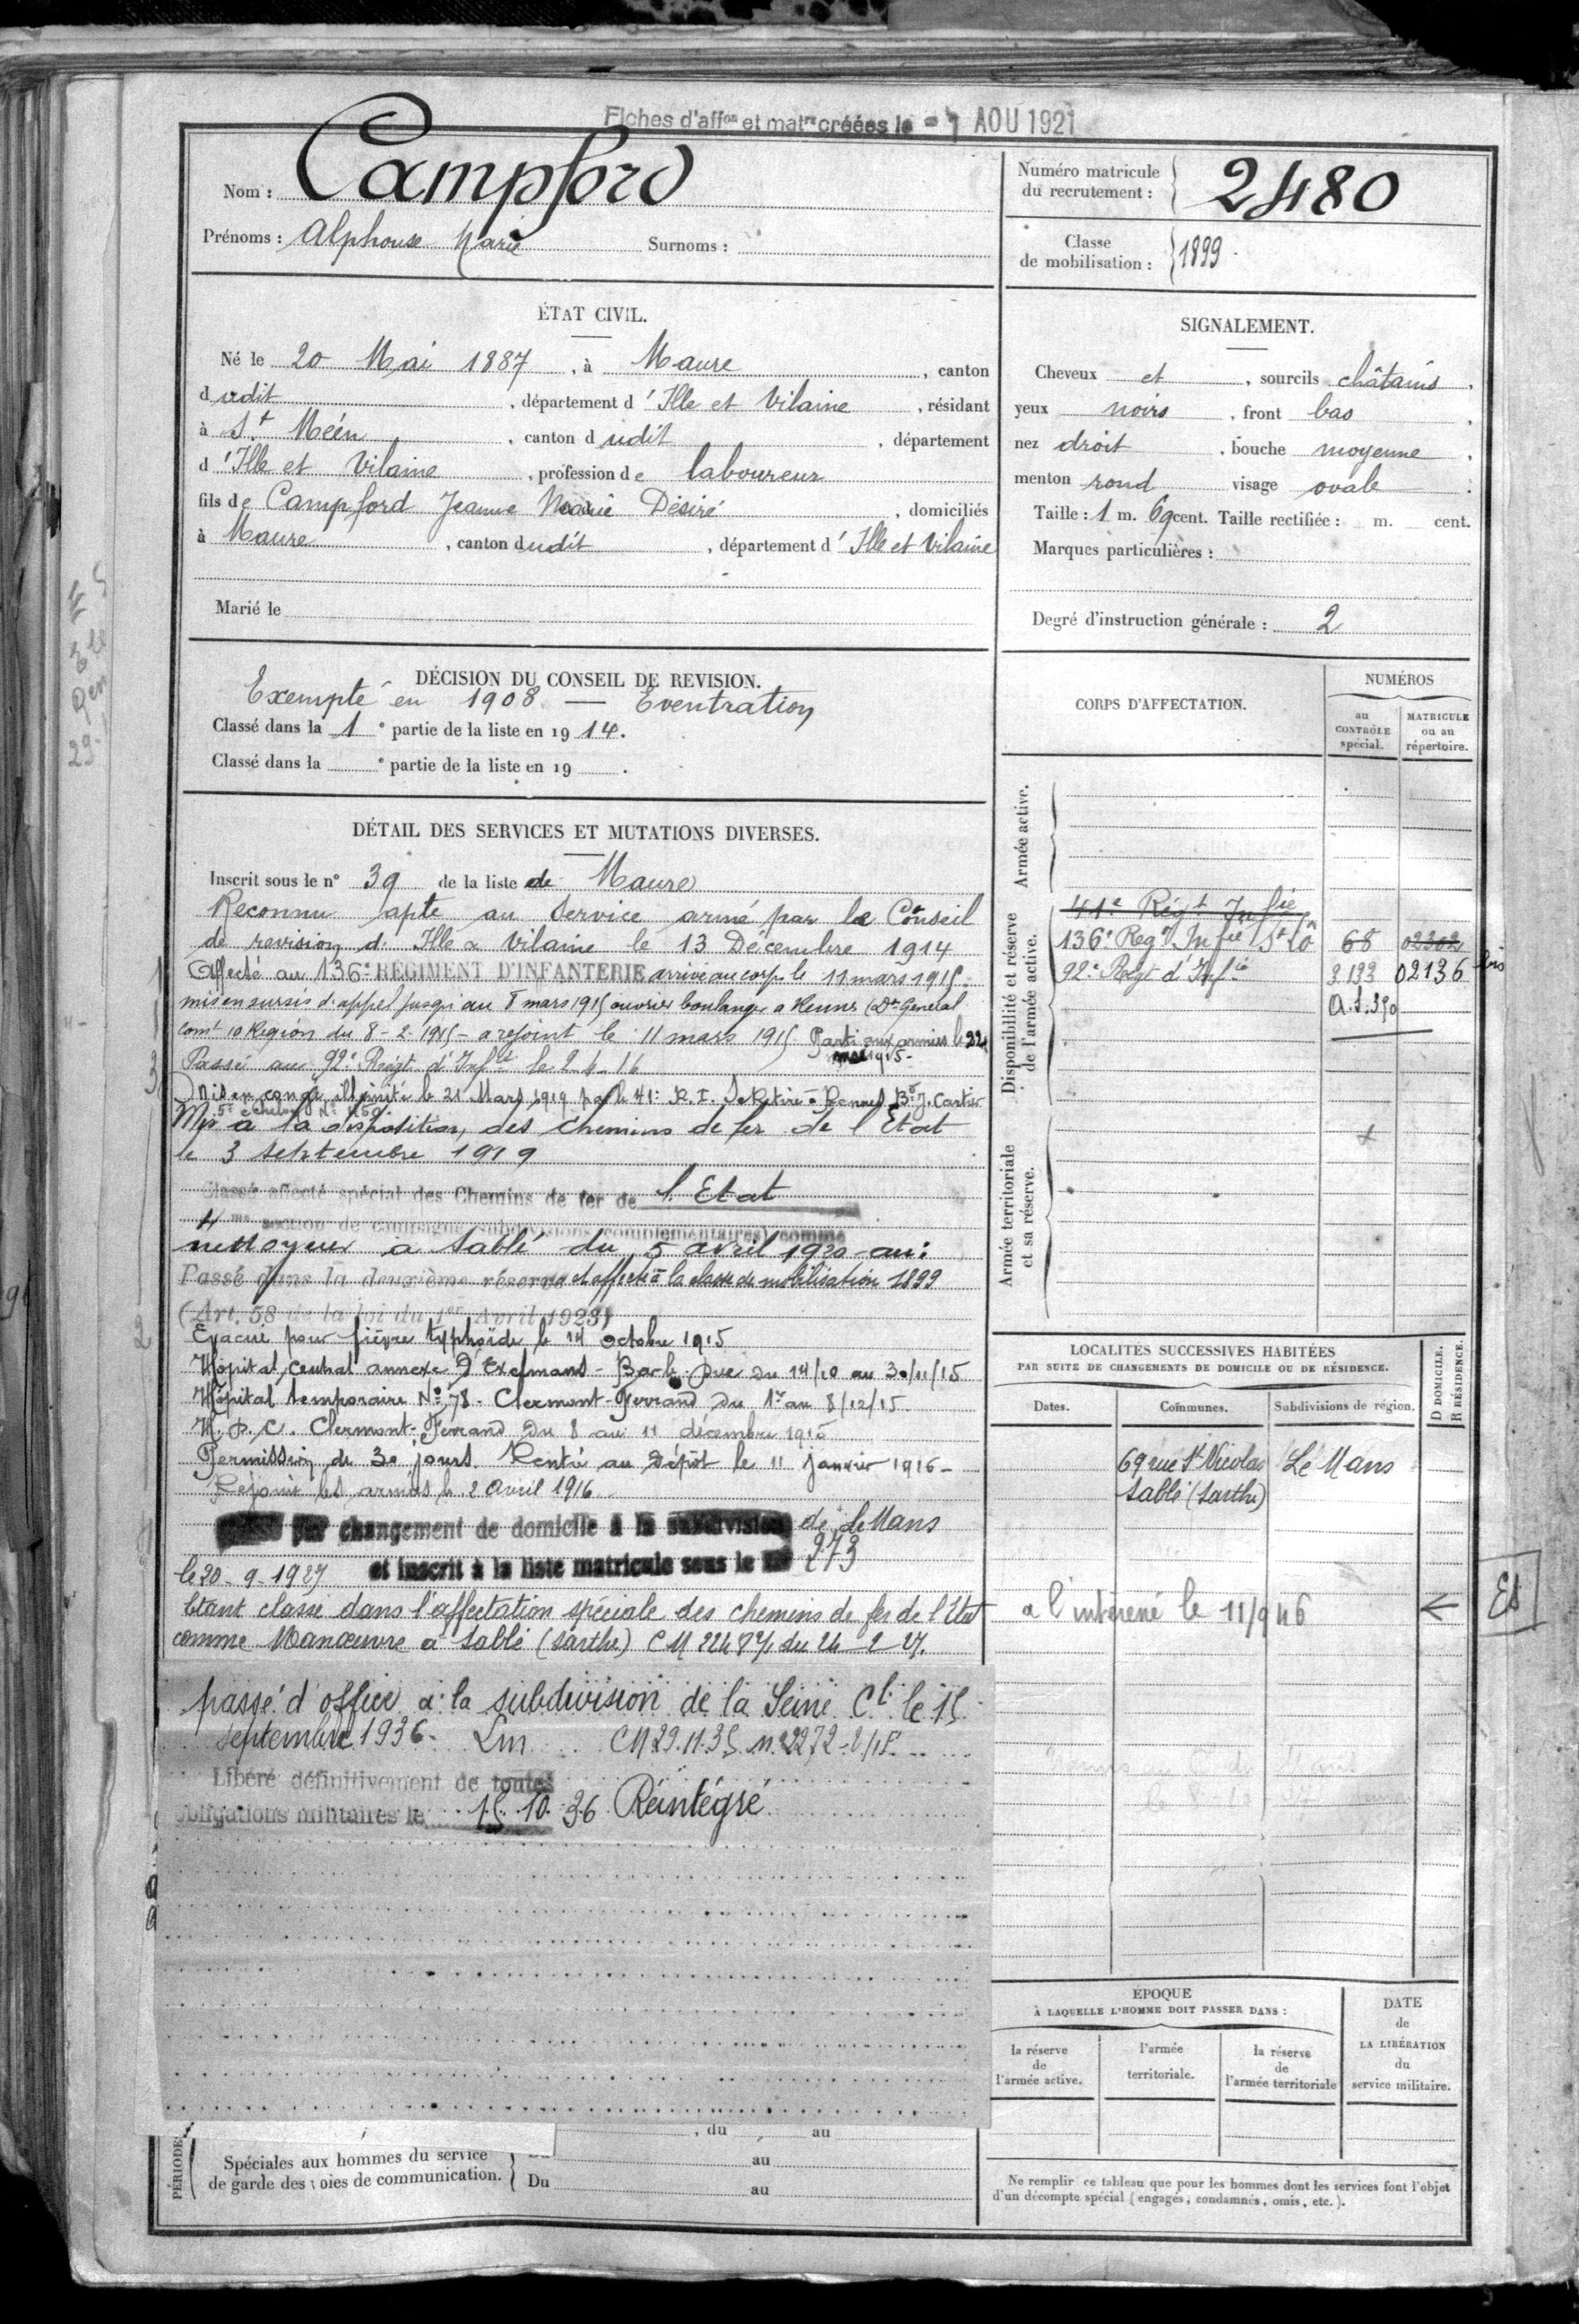 Fiches d'affon et matre créées le - 1 AOU 1921
Nom : Campford
Prénoms : Alphonse Marie Surnoms :
Numéro matricule du recrutement : 2480
Classe de mobilisation : 1899
ÉTAT CIVIL.
Né le 20 Mai 1887, à Maure, canton
dudit, département d'Ille et Vilaine, résidant
à St Méen, canton dudit, département
d'Ille et Vilaine, profession de laboureur
fils de Campford Jeanne Marie Désiré, domiciliés
à Maure, canton dudit, département d'Ille et Vilaine
Marié le
SIGNALEMENT.
Cheveux et, sourcils châtains,
yeux noirs, front bas,
nez droit, bouche moyenne,
menton rond visage ovale
Taille : 1 m. 69 cent. Taille rectifiée : m. cent.
Marques particulières :
Degré d'instruction générale : 2
DÉCISION DU CONSEIL DE REVISION.
Exempté en 1908 — Eventration
Classé dans la 1e partie de la liste en 1914.
Classé dans la e partie de la liste en 19 .
DÉTAIL DES SERVICES ET MUTATIONS DIVERSES.
Inscrit sous le n° 39 de la liste de Maure
Reconnu apte au Service armé par le Conseil
de revision d'Ille & Vilaine le 13 Décembre 1914
Affecté au 136e RÉGIMENT D'INFANTERIE arrivé au corps le 11 mars 1915.
mis en sursis d'appel jusqu'au 8 mars 1915 ouvrier boulanger a Rennes (Don General
Comt 10 Région du 8-2-1915 - a rejoint le 11 mars 1915 Parti aux armées le 22
mai 1915 -
Passé au 92e Régt d'Inft le 2-4-16
Mis en congé illimité le 21 Mars 1919 par le 41e R.I. Se Retire à Rennes Bd J. Cartier
5e échelon N°
Mis à la disposition des chemins de fer de l'Etat
le 3 septembre 1919
Classé affecté spécial des Chemins de fer de l'Etat
4me section de campagne (subdivisions complémentaires) comme
nettoyeur à Sablé du 5 avril 1920 au :
Passé dans la deuxième réserve et affecté à la classe de mobilisation 1899
(Art. 58 de la loi du 1er Avril 1923)
Evacué pour fièvre typhoïde le 14 octobre 1915
Hôpital central annexe d'Exelmans - Bar-le-Duc du 14/10 au 30/11/15
Hôpital temporaire N° 78 - Clermont-Ferrand du 1er au 8/12/15
Clermont-Ferrand du 8 au 11 décembre 1915
Permission de 30 jours. Rentré au Dépôt le 11 janvier 1916 -
Rejoint les armées le 2 avril 1916
par changement de domicile à la subdivision de Le Mans
le 20-9-1927 et inscrit à la liste matricule sous le N° 273
Etant classé dans l'affectation spéciale des chemins de fer de l'Etat
comme Manœuvre à Sablé (Sarthe) CM du 24-2-27.
passé d'office à la subdivision de la Seine Cl le 15
septembre 1936. CM 29.11.35 n° 2272
Libéré définitivement de toutes
obligations militaires le 15.10.36 Réintégré
CORPS D'AFFECTATION.
NUMÉROS
au CONTRÔLE spécial.
MATRICULE ou au répertoire.
Armée active.
Disponibilité et réserve de l'armée active.
41e Régt Infie
136e Regt Infie St Lô 68 02302
92e Régt d'Infie 2133 02136 bis
Armée territoriale et sa réserve.
LOCALITÉS SUCCESSIVES HABITÉES
PAR SUITE DE CHANGEMENTS DE DOMICILE OU DE RÉSIDENCE.
Dates. Communes. Subdivisions de région. D DOMICILE. R RÉSIDENCE.
69 rue St Nicolas Le Mans
Sablé (Sarthe)
le 11/9 46
ÉPOQUE
À LAQUELLE L'HOMME DOIT PASSER DANS :
la réserve de l'armée active.
l'armée territoriale.
la réserve de l'armée territoriale
DATE de LA LIBÉRATION du service militaire.
, du au
Spéciales aux hommes du service
de garde des voies de communication.
au
Du au
Ne remplir ce tableau que pour les hommes dont les services font l'objet
d'un décompte spécial (engagés, condamnés, omis, etc.).